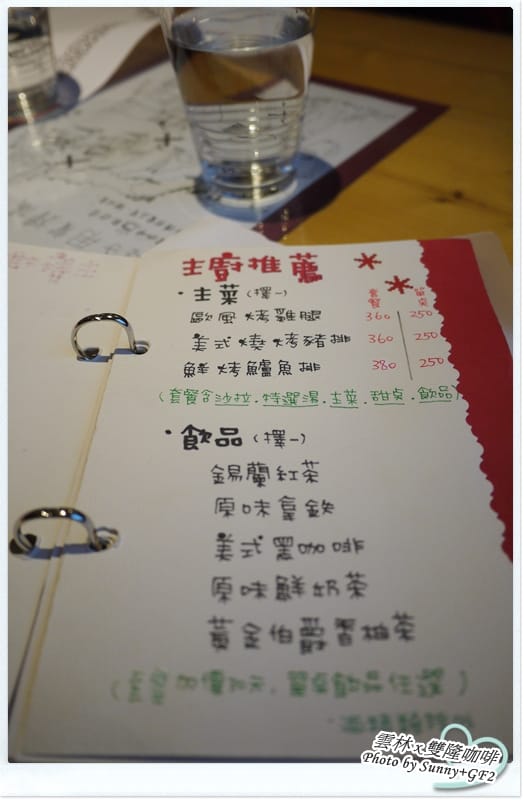 主廚推薦
・主菜(擇一) 套餐 單點
歐風烤雞腿 360 250
美式燒烤豬排 360 250
鮮烤鱸魚排 380 250
(套餐含沙拉.特選湯.主菜.甜点.飲品)
・飲品(擇一)
錫蘭紅茶
原味拿鉄
美式黑咖啡
原味鮮奶茶
黃金伯爵香柚茶
雲林x雙隆咖啡
Photo by Sunny+GF2